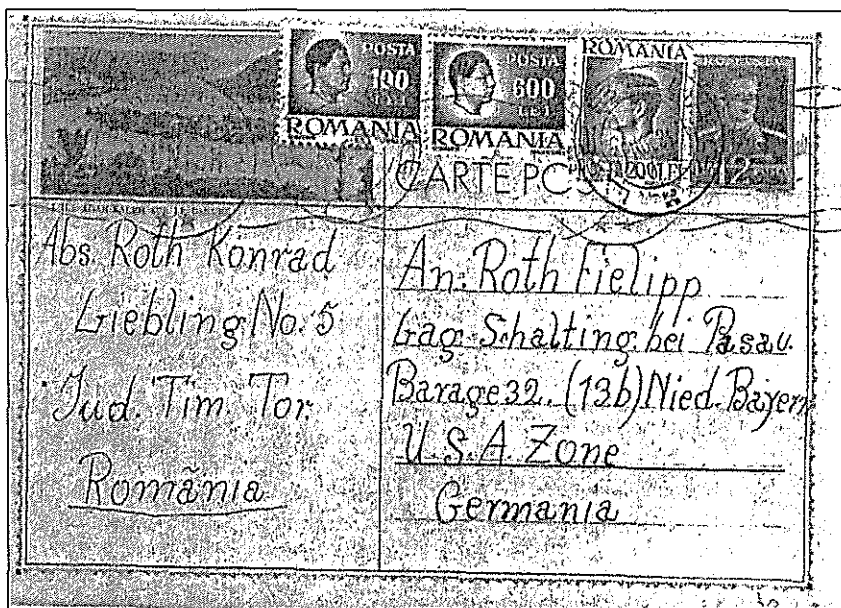 POSTA
100
LEI
ROMANIA
POSTA
600
LEI
ROMANIA
ROMANIA
200 LEI
12
CARTE POS
Abs. Roth Konrad
Liebling No. 5
Jud. Tim. Tor.
Românía
An: Roth Fielipp
Lag. Schalting bei Pasau.
Barage 32. (13b) Nied. Bayern
U.S.A. Zone
Germania